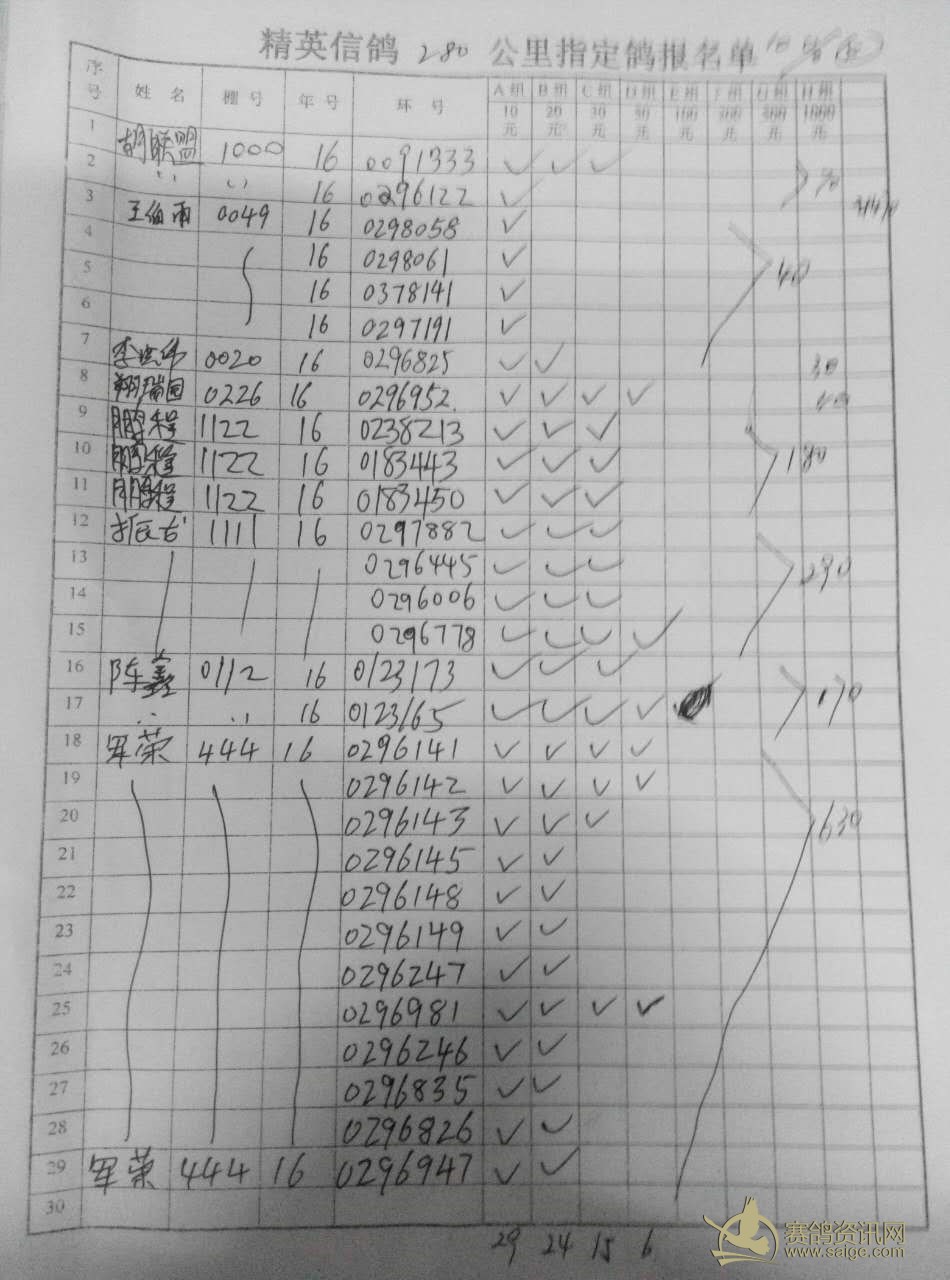 精英信鸽 280 公里指定鸽报名单
序号 姓 名 棚 号 年 号 环 号 A组 10元 B组 20元 C组 30元 D组 50元 E组 100元 F组 200元 G组 H组 1000元
1 联盟 1000 16 0091333 ✓ ✓ ✓
2 〃 〃 16 0296122 ✓ 70
3 王伯雨 0049 16 0298058 ✓
4 16 0298061 ✓ 40
5 16 0378141 ✓
6 16 0297191 ✓
7 李 0020 16 0296825 ✓ ✓ 30
8 翱瑞园 0226 16 0296952 ✓ ✓ ✓ ✓
9 鹏程 1122 16 0238213 ✓ ✓ ✓
10 鹏程 1122 16 0183443 ✓ ✓ ✓ 180
11 鹏程 1122 16 0183450 ✓ ✓ ✓
12 1111 16 0297882 ✓ ✓ ✓
13 0296445 ✓ ✓ ✓ 290
14 0296006 ✓ ✓ ✓
15 0296778 ✓ ✓ ✓ ✓
16 陈鑫 0112 16 0123173 ✓ ✓ ✓
17 〃 〃 16 0123165 ✓ ✓ ✓ ✓ 170
18 军荣 444 16 0296141 ✓ ✓ ✓ ✓
19 0296142 ✓ ✓ ✓ ✓
20 0296143 ✓ ✓ ✓ 630
21 0296145 ✓ ✓
22 0296148 ✓ ✓
23 0296149 ✓ ✓
24 0296247 ✓ ✓
25 0296981 ✓ ✓ ✓ ✓
26 0296246 ✓ ✓
27 0296835 ✓ ✓
28 0296826 ✓ ✓
29 军荣 444 16 0296947 ✓ ✓
30
29 24 15 6
赛鸽资讯网
www.saige.com